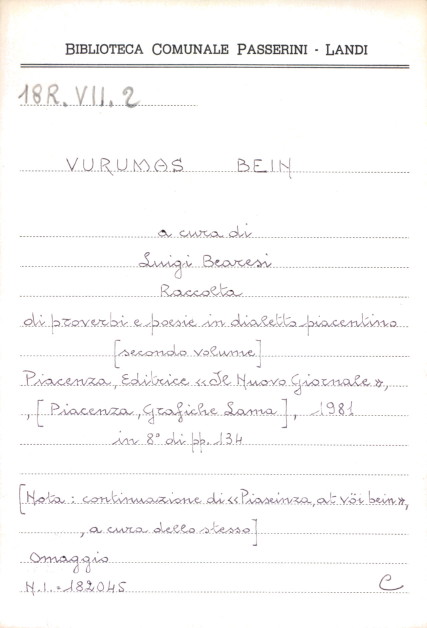 BIBLIOTECA COMUNALE PASSERINI - LANDI
18R. VII. 2
VURUMAS BEIN
a cura di
Luigi Bearesi
Raccolta
di proverbi e poesie in dialetto piacentino
[secondo volume]
Piacenza, Editrice «Il Nuovo Giornale»,
, [Piacenza, Grafiche Lama], 1981
in 8° di pp. 134
[Nota: continuazione di «Piaseinza, at vöi bein»,
, a cura dello stesso]
Omaggio
N.I. = 182045 C